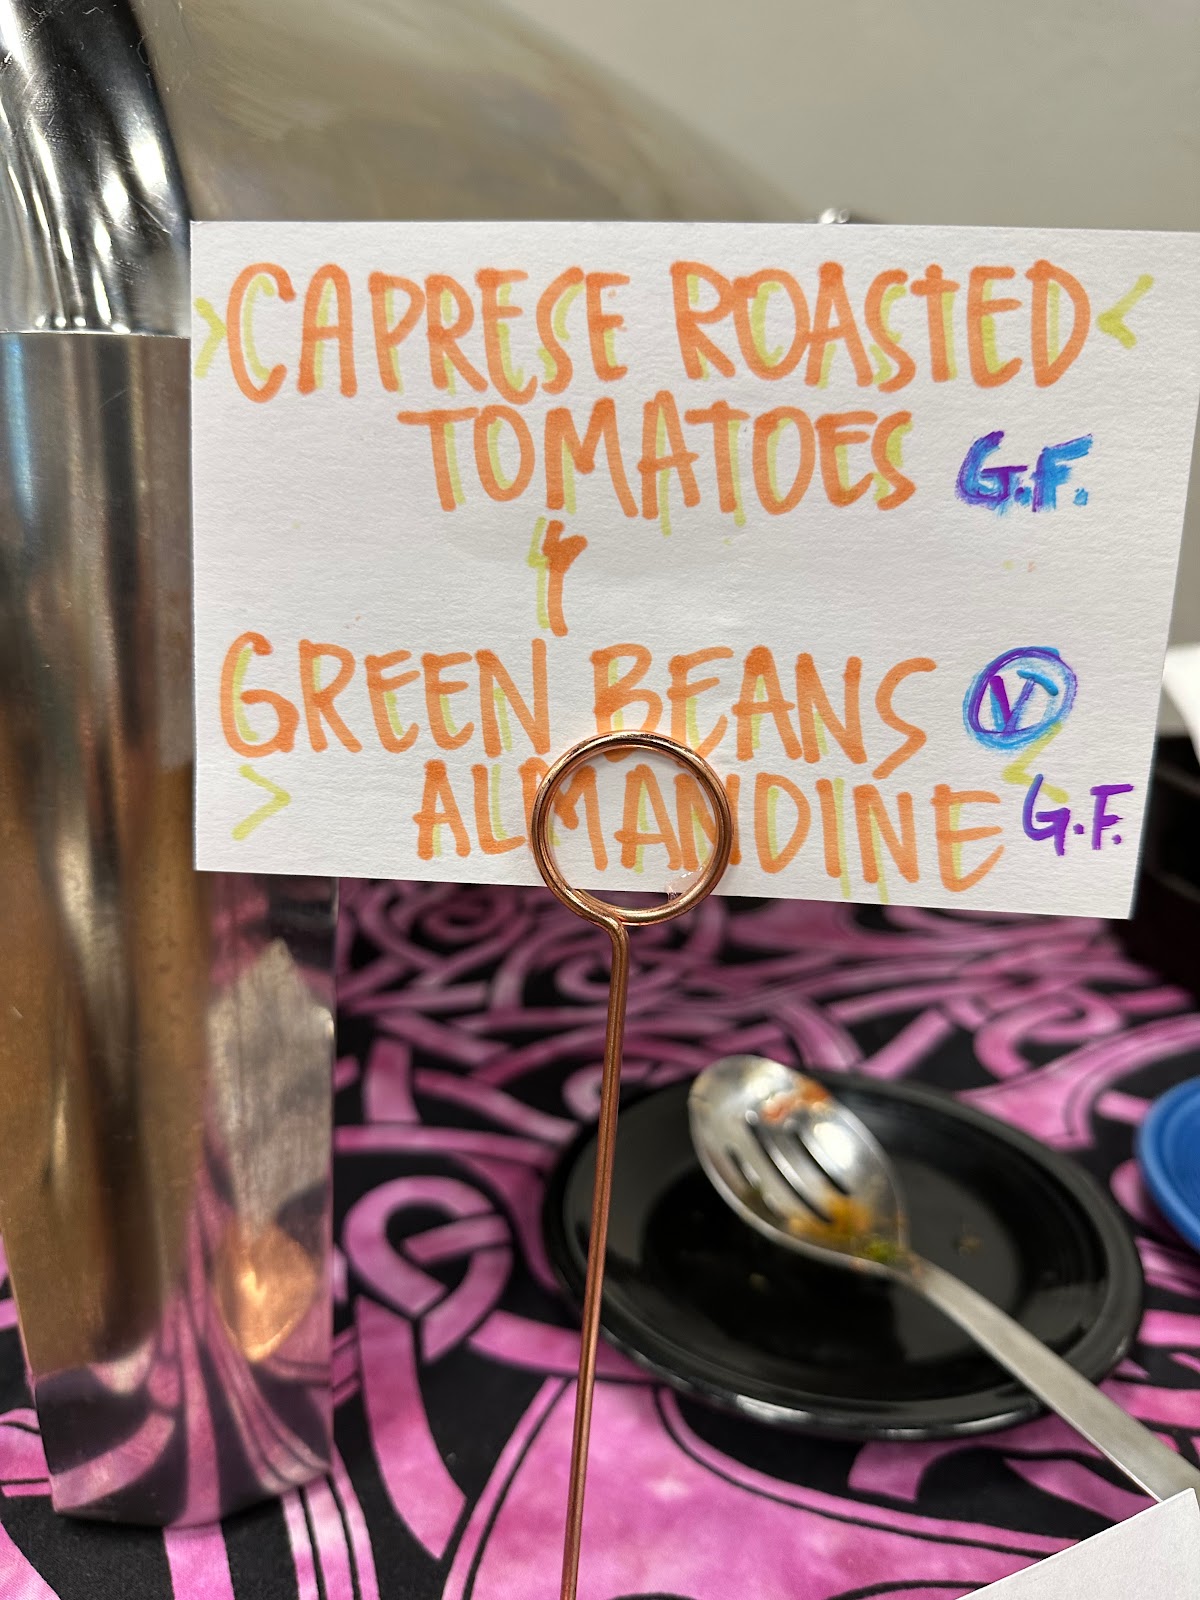 > CAPRESE ROASTED <
TOMATOES G.F.
&
GREEN BEANS V
> ALMANDINE < G.F.